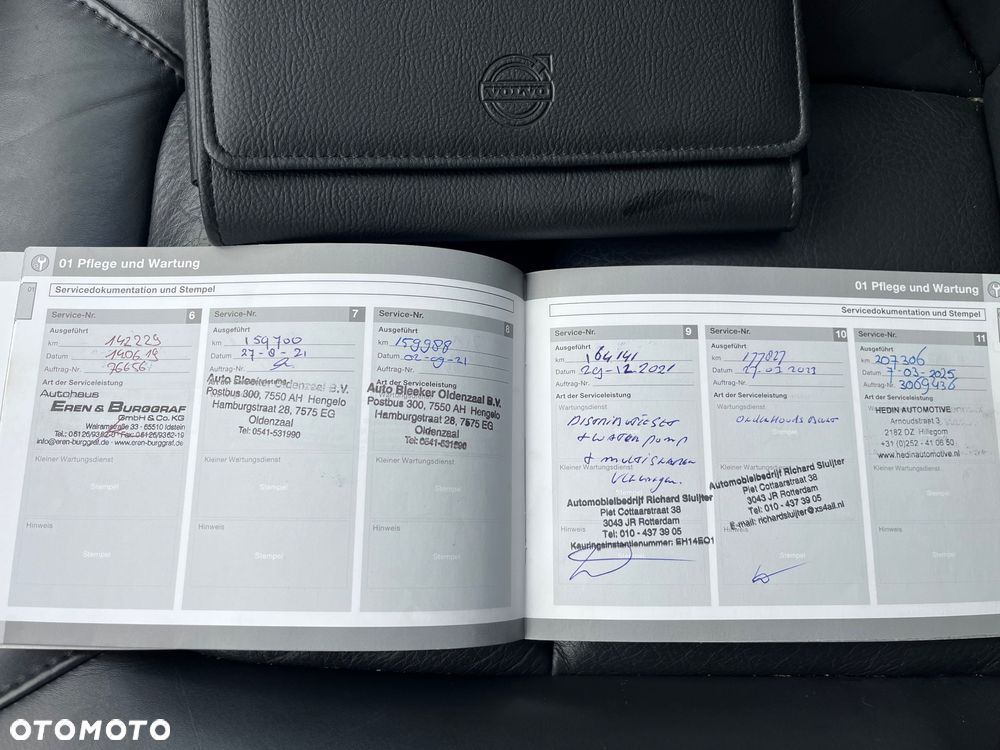 VOLVO
01 Pflege und Wartung
01
Servicedokumentation und Stempel
Service-Nr. 6
Ausgeführt
km 142229
Datum 140619
Auftrag-Nr. 76656
Art der Serviceleistung
Autohaus
EREN & BURGGRAF
GmbH & Co. KG
65510 Idstein
info@eren-burggraf.de · www.eren-burggraf.de
Kleiner Wartungsdienst
Stempel
Hinweis
Stempel
Service-Nr. 7
Ausgeführt
km 159700
Datum 27-8-21
Auftrag-Nr.
Auto Bleeker Oldenzaal B.V.
Postbus 300, 7550 AH Hengelo
Hamburgstraat 28, 7575 EG
Oldenzaal
Tel: 0541-531990
Kleiner Wartungsdienst
Stempel
Hinweis
Stempel
Service-Nr. 8
Ausgeführt
km 159988
Datum 02-09-21
Auftrag-Nr.
Art der Serviceleistung
Auto Bleeker Oldenzaal B.V.
Postbus 300, 7550 AH Hengelo
Hamburgstraat 28, 7575 EG
Oldenzaal
Tel: 0541-531990
Kleiner Wartungsdienst
Stempel
Hinweis
Stempel
01 Pflege und Wartung
Servicedokumentation und Stempel
Service-Nr. 9
Ausgeführt
km 164141
Datum 29-12-2021
Auftrag-Nr.
Art der Serviceleistung
Wartungsdienst
+ waterpomp
+ multiriemen
Kleiner Wartungsdienst
Automobielbedrijf Richard Sluijter
Piet Cottaarstraat 38
3043 JR Rotterdam
Tel: 010 - 437 39 05
Keuringsinstantienummer: EH14EO1
Hinweis
Stempel
Service-Nr. 10
Ausgeführt
km 177827
Datum
Auftrag-Nr.
Art der Serviceleistung
Wartungsdienst
Onderhouds Beurt
Kleiner Wartungsdienst
Automobielbedrijf Richard Sluijter
Piet Cottaarstraat 38
3043 JR Rotterdam
Tel: 010 - 437 39 05
E-mail: richardsluijter@xs4all.nl
Hinweis
Stempel
Service-Nr. 11
Ausgeführt
km 207306
Datum 7-03-2025
Auftrag-Nr. 3009436
Art der Serviceleistung
HEDIN AUTOMOTIVE
Arnoudstraat 3
2182 DZ Hillegom
+31 (0)252 - 41 06 50
www.hedinautomotive.nl
Kleiner Wartungsdienst
Stempel
Hinweis
Stempel
OTOMOTO